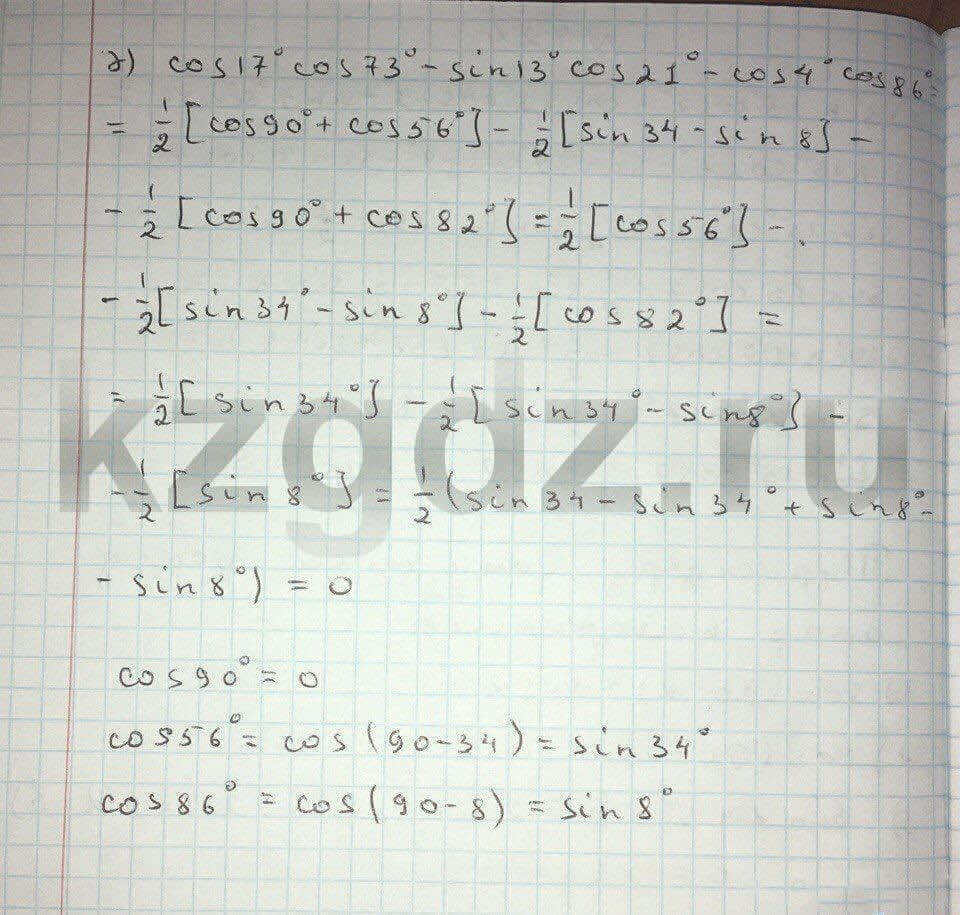 2) cos17° cos73° - sin13° cos21° - cos4° cos86° =
= 1/2 [cos90° + cos56°] - 1/2 [sin34 - sin8] -
- 1/2 [cos90° + cos82°] = 1/2 [cos56°] -
- 1/2 [sin34° - sin8°] - 1/2 [cos82°] =
= 1/2 [sin34°] - 1/2 [sin34° - sin8°] -
- 1/2 [sin8°] = 1/2 (sin34 - sin34° + sin8° -
- sin8°) = 0
cos90° = 0
cos56° = cos(90-34) = sin34°
cos86° = cos(90-8) = sin8°
kzgdz.ru